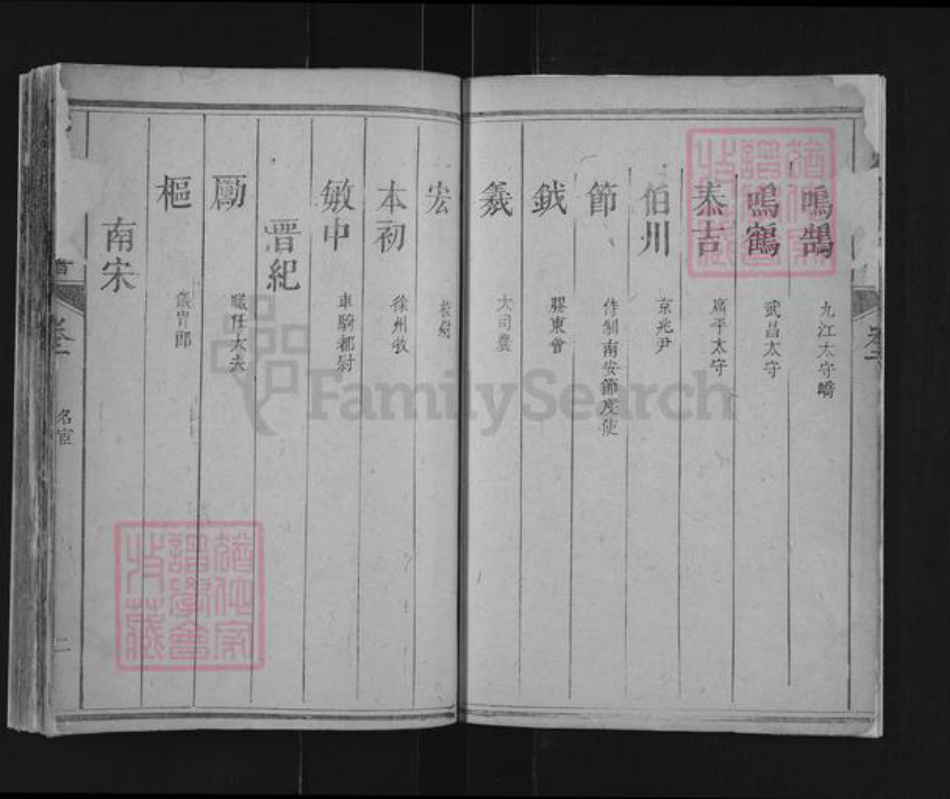 鳴鵠 九江太守
鳴鶴 武昌太守
泰吉 廣平太守
伯川 京兆尹
節 侍制南安節度使
鉞 膠東令
羲 大司農
宏 校尉
本初 徐州牧
敏中 車騎都尉
晋紀
勵 職任大夫
樞 議胄郎
南宋
卷一
名宦
二
FamilySearch